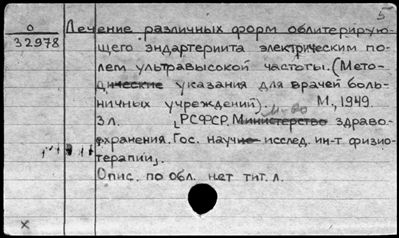 5
0
32978
Лечение различных форм облитерирую-
щего эндартериита электрическим по-
лем ультравысокой частоты. (Мето-
дические указания для врачей боль-
ничных учреждений). М., 1949.
3 л. [РСФСР. Министерство здраво-
охранения. Гос. научно- исслед. ин-т физио-
терапии].
Опис. по обл. нет тит. л.
x